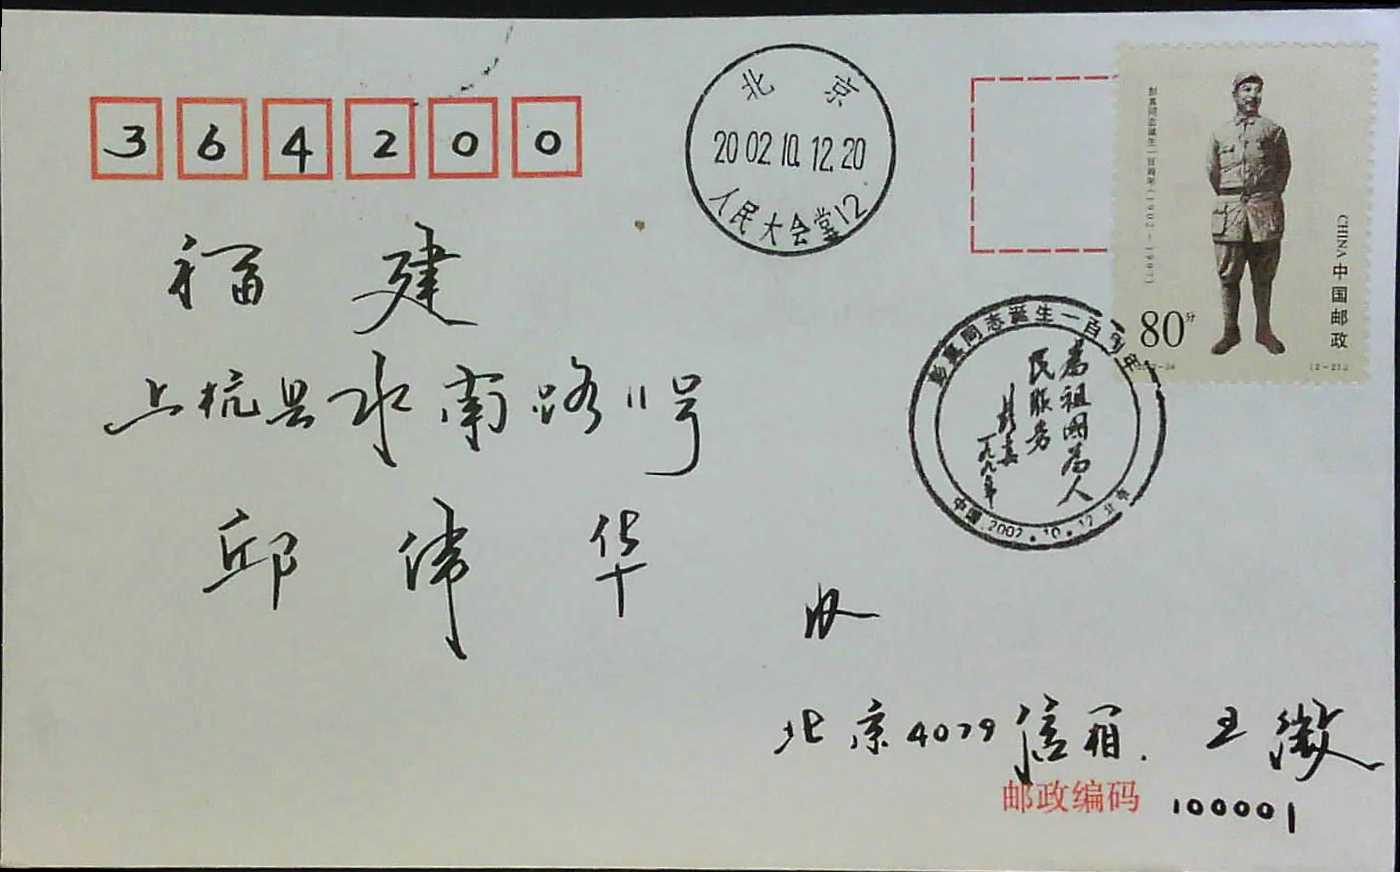 364200
北京
2002.10.12.20
人民大会堂12
彭真同志诞生一百周年(1902-1997)
CHINA 中国邮政
80分
(2-2)J
福建
上杭县水南路11号
邱伟华
收
彭真同志诞生一百周年
为祖国为人
民服务
彭真
一九九〇年
中国.2002.10.12.北京
北京4079信箱. 王徽
邮政编码 100001